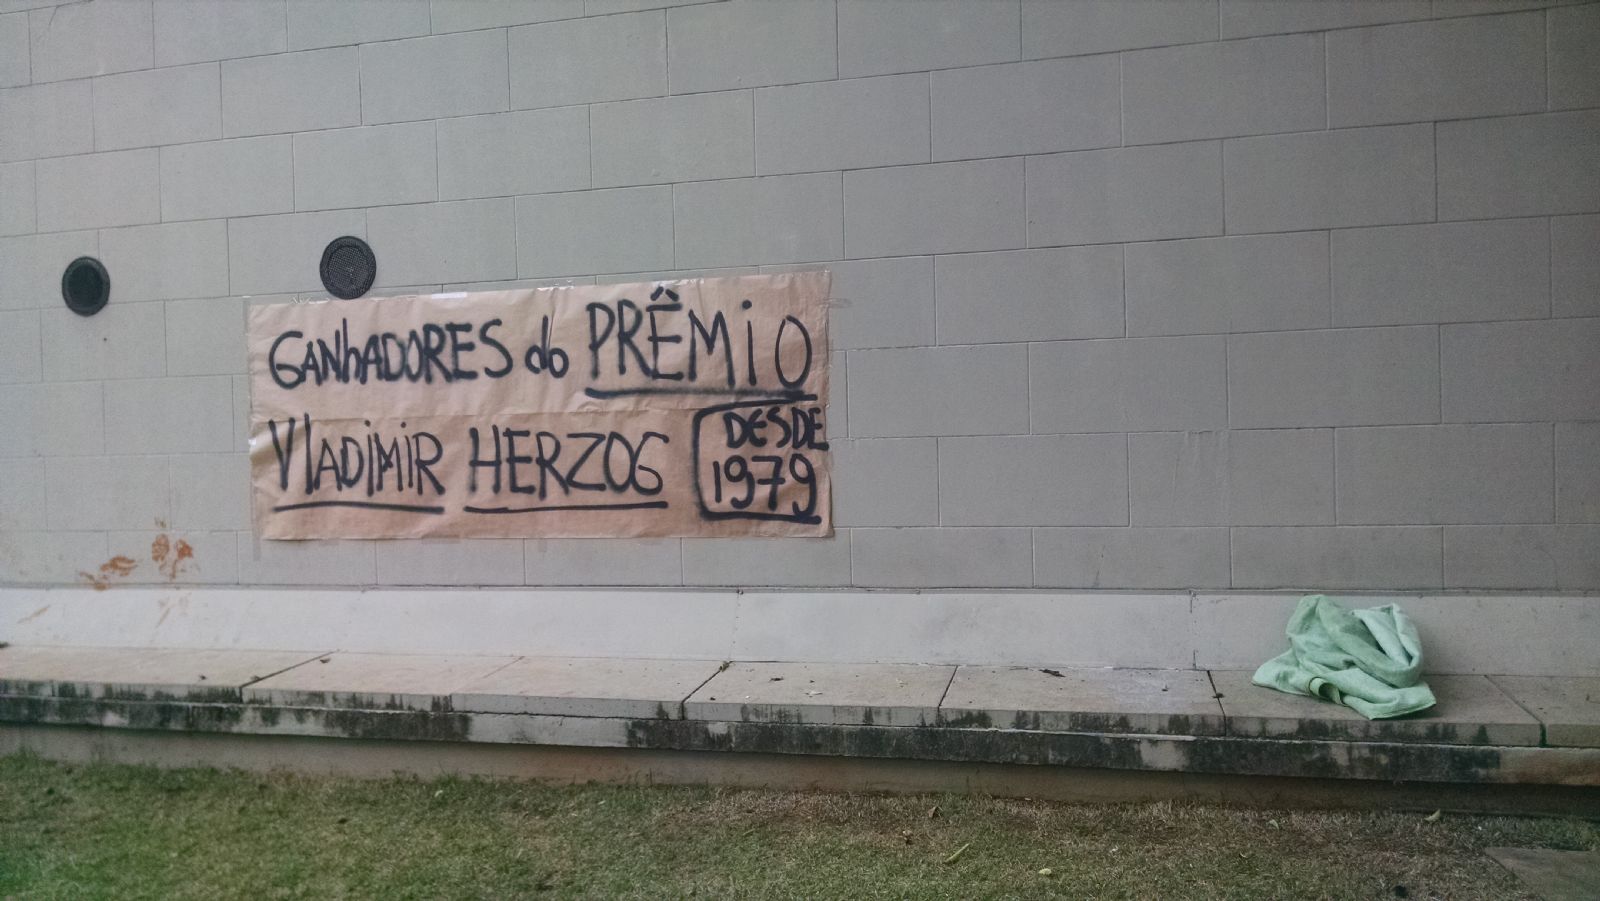 GANhADORES do PRÊMiO
VlADiMiR HERZOG DESDE
1979